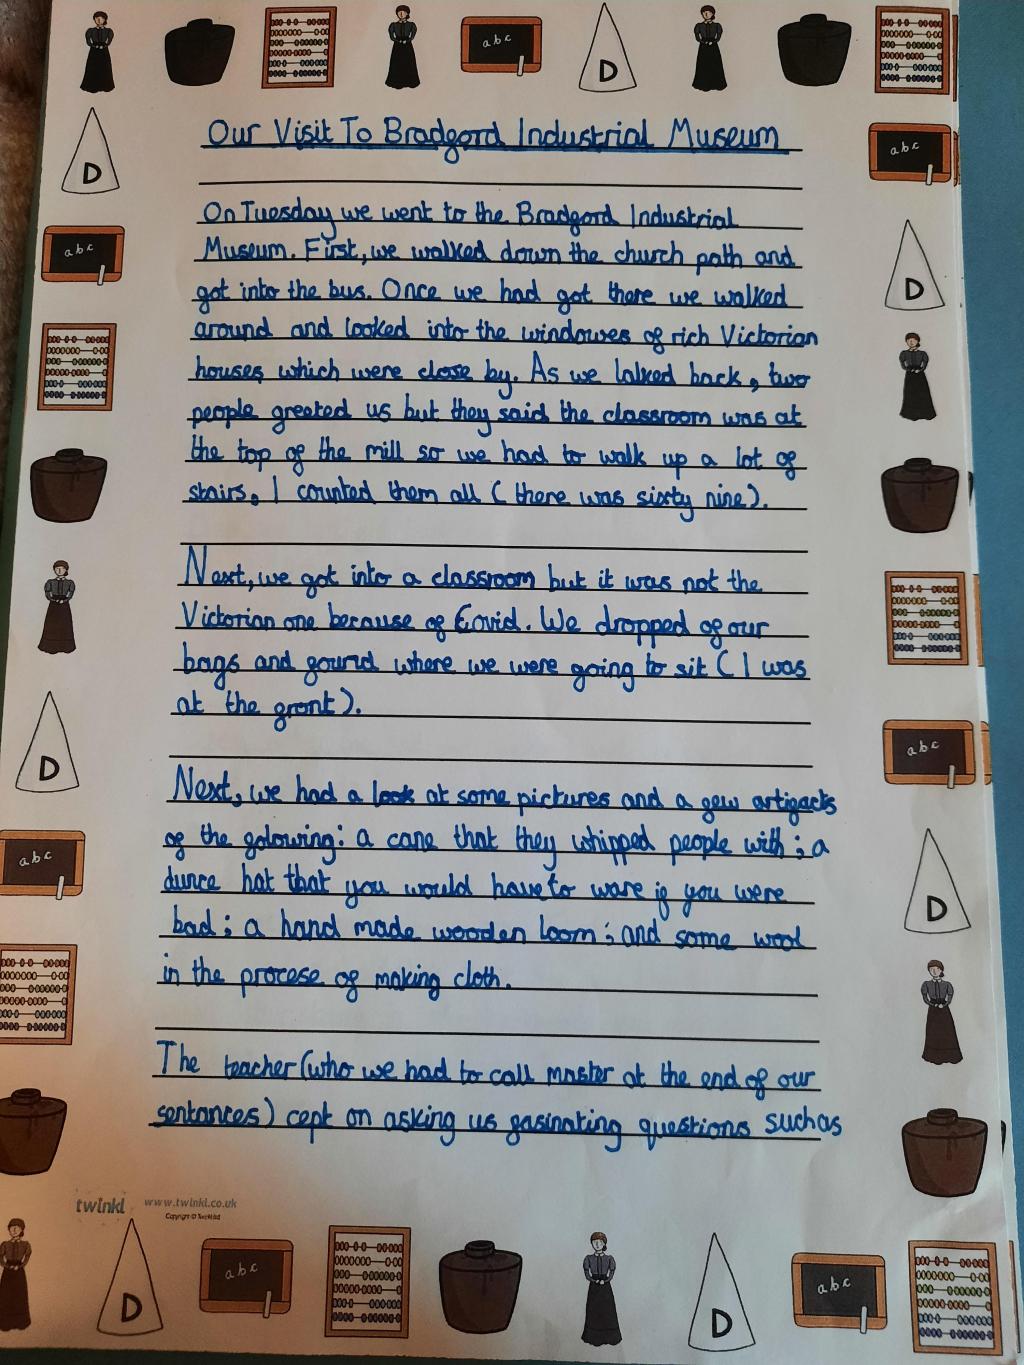 Our Visit To Bradford Industrial Museum
On Tuesday we went to the Bradford Industrial
Museum. First, we walked down the church path and
got into the bus. Once we had got there we walked
around and looked into the windowes of rich Victorian
houses which were close by. As we lalked back, two
people greeted us but they said the classroom was at
the top of the mill so we had to walk up a lot of
stairs. I counted them all (there was sixty nine).
Next, we got into a classroom but it was not the
Victorian one because of Covid. We dropped of our
bags and gound where we were going to sit (I was
at the front).
Next, we had a look at some pictures and a few artifacts
of the folowing: a cane that they whipped people with; a
dunce hat that you would have to ware if you were
bad; a hand made wooden loom; and some wool
in the procese of making cloth.
The teacher (who we had to call master at the end of our
sentances) cept on asking us fasinating questions such as
twinkl www.twinkl.co.uk
abc
D
abc
D
abc
D
abc
D
abc
abc
D
D
abc
D
abc
D